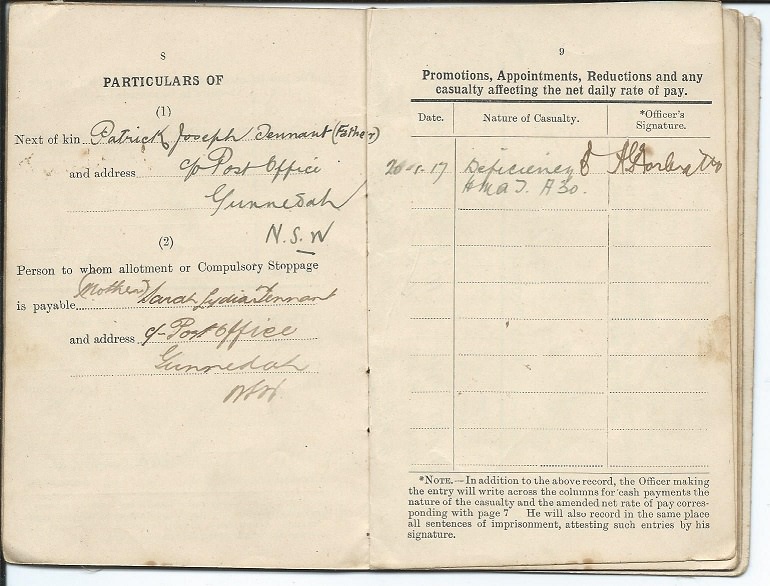 8
PARTICULARS OF
(1)
Next of kin Patrick Joseph Tennant (Father)
and address c/o Post Office
Gunnedah
N.S.W
(2)
Person to whom allotment or Compulsory Stoppage
(Mother)
is payable Sarah Lydia Tennant
and address c/- Post Office
Gunnedah
NSW
9
Promotions, Appointments, Reductions and any
casualty affecting the net daily rate of pay.
Date. Nature of Casualty. *Officer's
Signature.
17 Deficiency
HMAT. A30.
*NOTE.—In addition to the above record, the Officer making
the entry will write across the columns for cash payments the
nature of the casualty and the amended net rate of pay corres-
ponding with page 7 He will also record in the same place
all sentences of imprisonment, attesting such entries by his
signature.